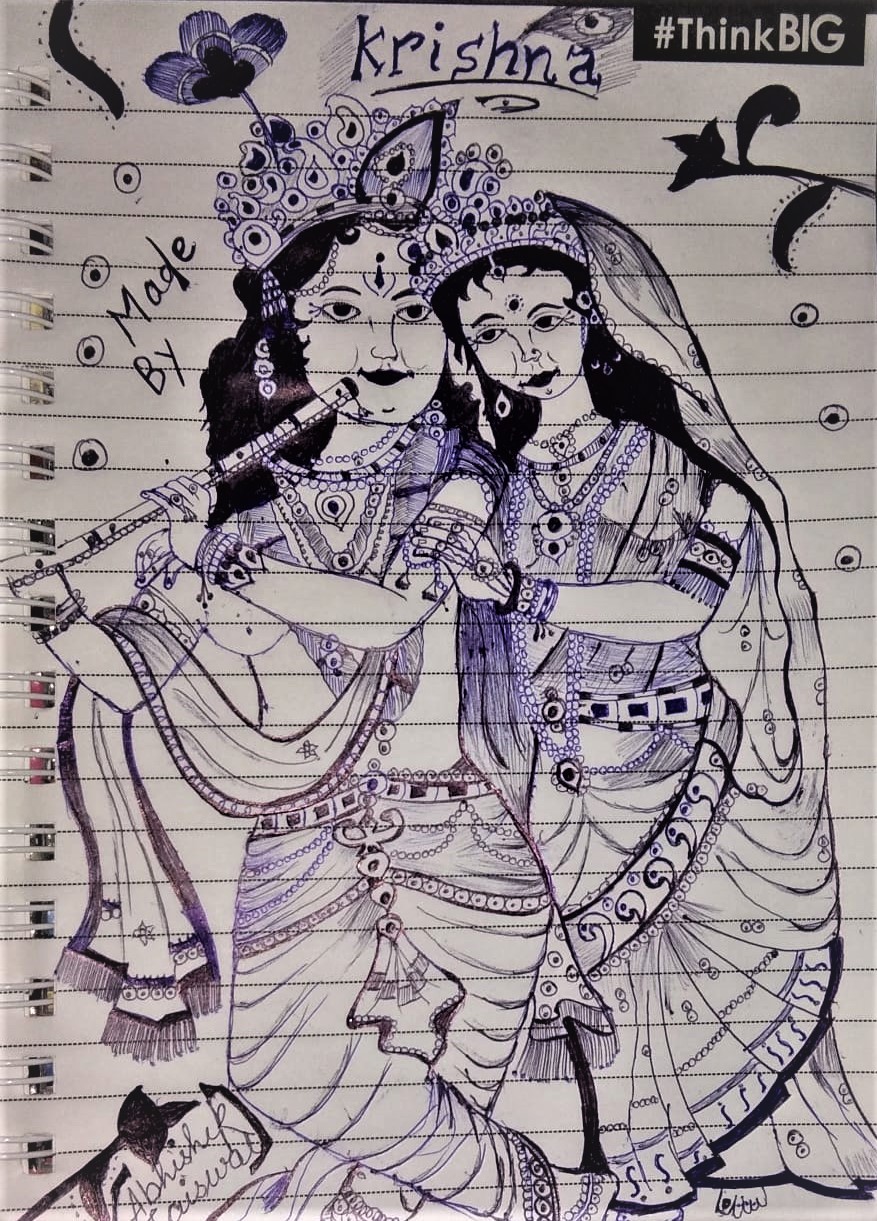 Krishna
#ThinkBIG
Made
By
Abhishek
Jaiswal